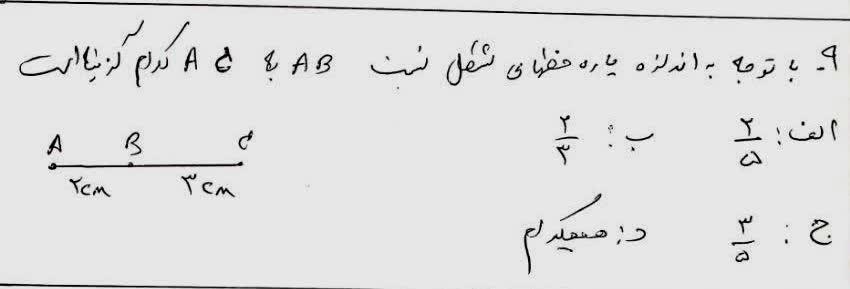 ۹- با توجه به اندازه پاره خطهای شکل نسبت AB به AC کدام گزینه است
الف: ۲/۵ ب: ۲/۳
A B C
۲cm ۳cm
ج: ۳/۵ د: هیچکدام